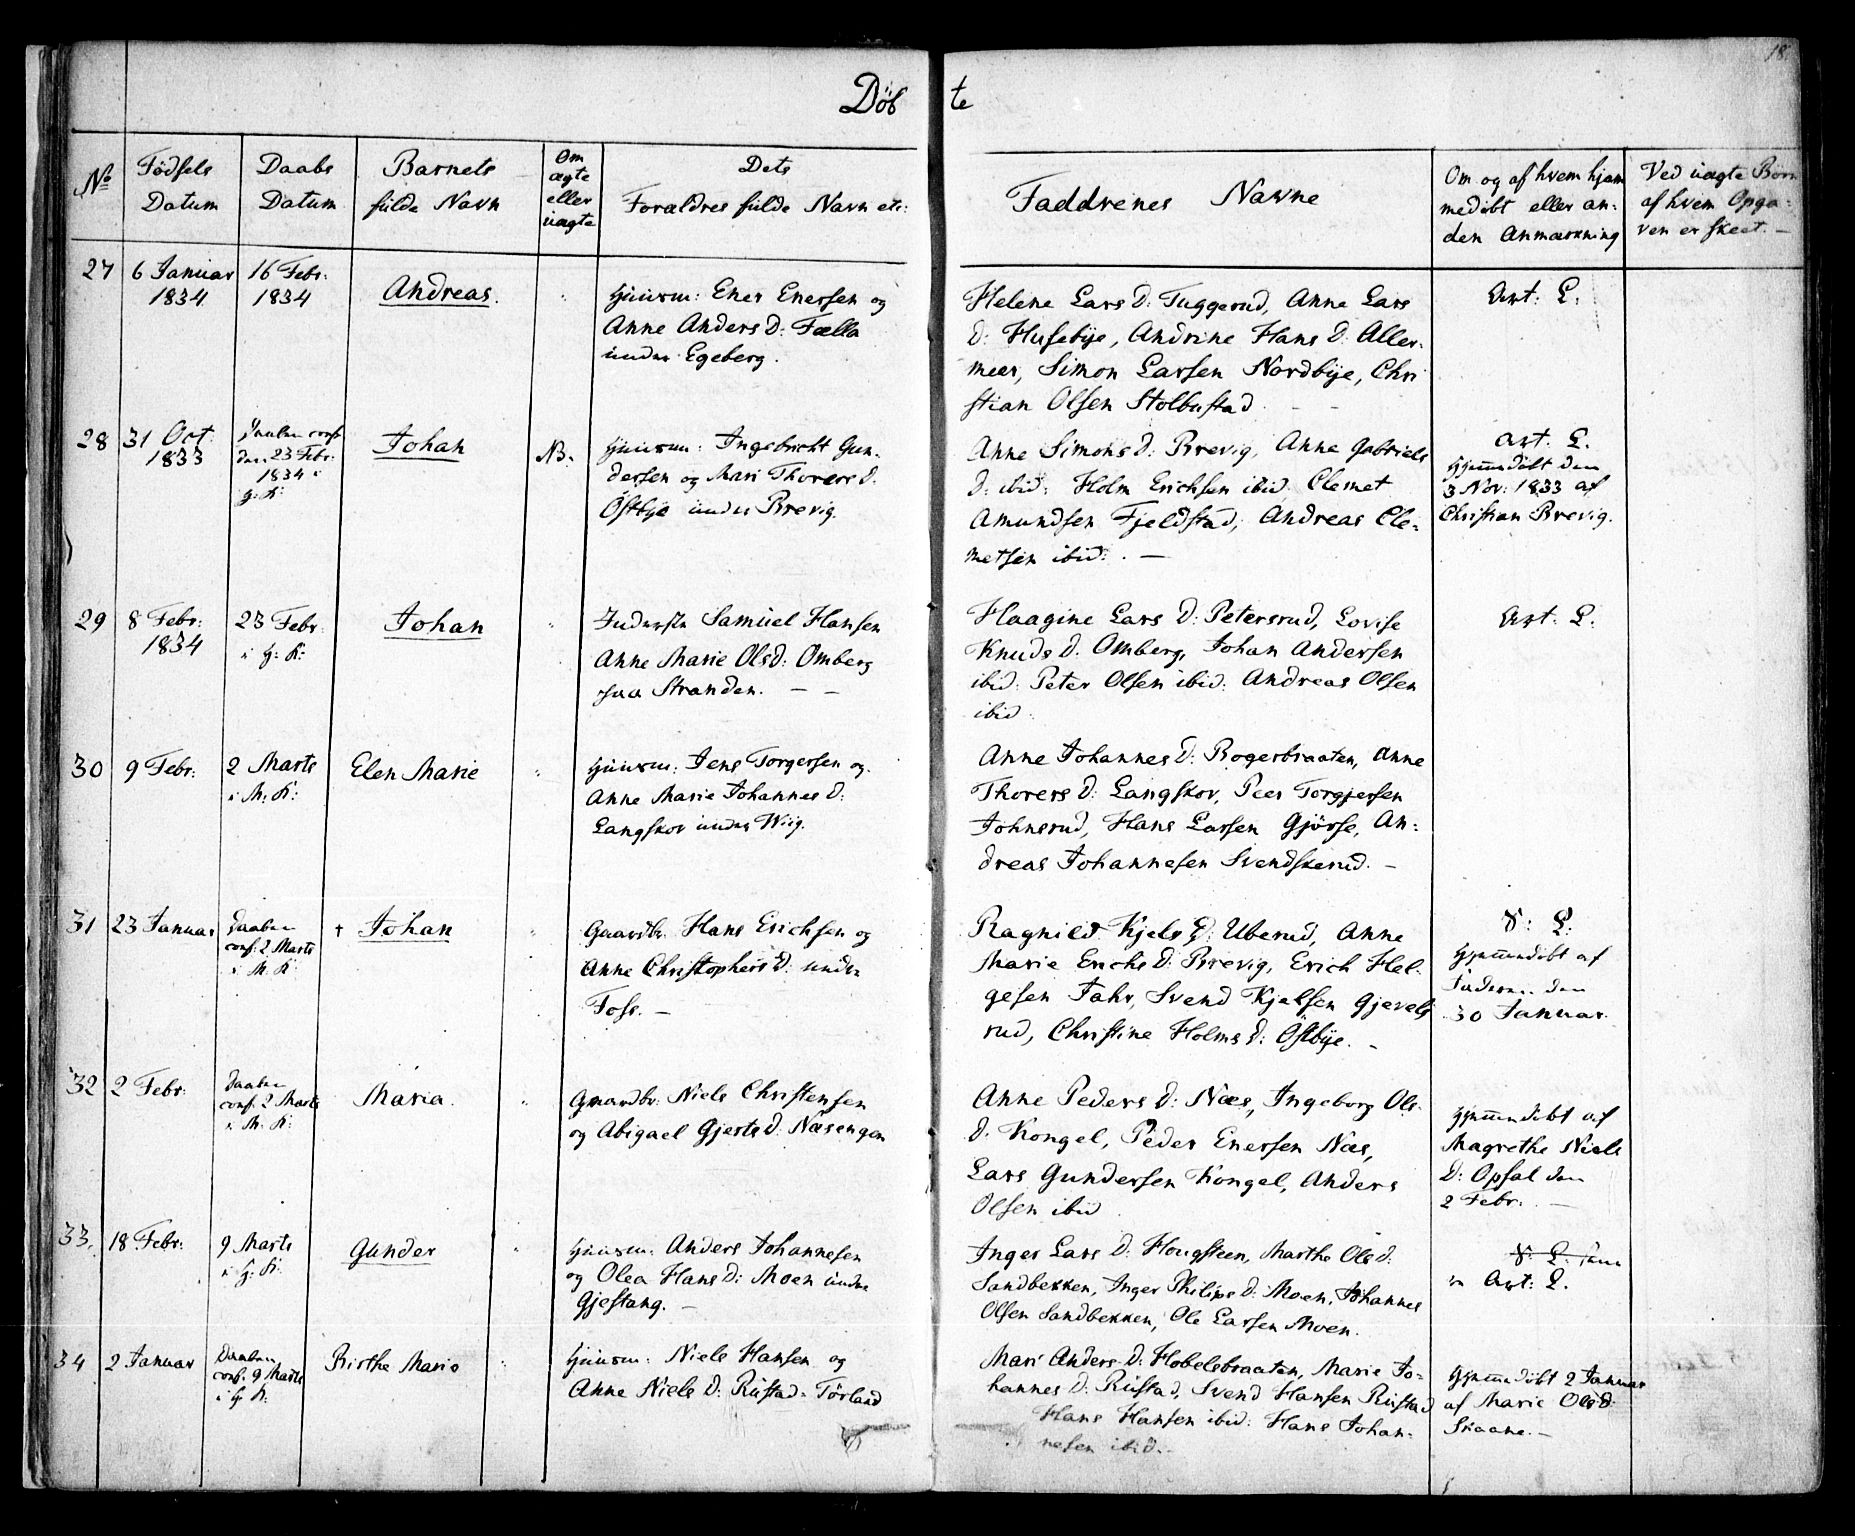 18
Döbte
No
Födsels
Datum
Daabs
Datum
Barnets
fulde Navn
Om
ægte
eller
uægte
Dets
Forældres fulde Navn etc:
Faddrenes Navne
Om og af hvem hjem
medöbt eller an:
den Anmærkning
Ved uægte Börn
af hvem Opga:
ven er skeet. –
27
6 Januar
1834
16 Febr:
1834
Andreas.
Huusm: Ener Enersen og
Anne Anders D: Fælla
under Egeberg.
Helene Lars D: Tuggerud, Anne Lars
D: Husebye, Andrine Hans D: Aller-
meer, Simon Larsen Nordbye, Chri
stian Olsen Stolbustad
Art: L.
28
31 Oct:
1833
Daaben conf
den 23 Febr:
1834 i
H: K:
Johan
NB.
Huusm: Ingebricht Gun-
dersen og Mari Thorers D:
Östbye under Brevig.
Anne Simons D: Brevig, Anne Gabriels
D: ibid: Holm Erichsen ibid. Clemet
Amundsen Fjeldstad, Andreas Cle-
metsen ibid: . –
Art: L.
Hjemmedöbt den
3 Nov: 1833 af
Christian Brevig.
29
8 Febr:
1834
23 Febr
i H: K:
Johan
Inderstr Samuel Hansen
Anne Marie Ols D: Omberg
paa Stranden. – –
Haagine Lars D: Petersrud, Lovise
Knuds D. Omberg, Johan Andersen
ibid: Peter Olsen ibid: Andreas Olsen
ibid:
Art: L:
30
9 Febr:
2 Marts
i M: K:
Elen Marie
Huusm: Jens Torgersen og
Anne Marie Johannes D:
Langskov under Wiig.
Anne Johannes D: Bogerbraaten, Anne
Thorers D: Langskov, Peer Torgjersen
Johnsrud, Hans Larsen Gjörse, An:
dreas Johannesen Svendskerud. –
31
23 Januar
Daaben
conf: 2 Marts
i M: K:
† Johan
Gaardbr. Hans Erichsen og
Anne Christophers D: under
Foss. –
Ragnild Kjels D: Uberud, Anne
Marie Erichs D: Brevig, Erich Hel-
gesen Fahr, Svend Kjelsen Gjevels
rud, Christine Holms D: Östbye. –
V: L:
Hjemmedöbt af
Faderen den
30 Januar.
32
2 Febr:
Daaben
conf: 2 Marts
i M: K:
Maria.
Gaardbr: Niels Christensen
og Abigael Gjerts D: Næsengen
Anne Peders D: Næs, Ingeborg Ols-
D. Kongel, Peder Enersen Næs,
Lars Gundersen Kongel, Anders
Olsen ibid.
Hjemmedöbt af
Magrethe Niels
D: Opsal den
2 Febr: –
33.
18 Febr:
9 Marts
i H: K:
Gunder
Huusm: Anders Johannesen
og Olea Hans D: Moen under
Gjestang. –
Inger Lars D: Hougsteen, Marthe Ols D:
Sandbekken, Inger Philips D: Moen, Johannes
Olsen Sandbekken, Ole Larsen Moen.
V: L:
Art: L.
34
2 Januar
Daaben
conf. 9 Marts
i H: K:
Birthe Marie
Huusm: Niels Hansen og
Anne Niels D: Rustad-Törland
Mari Anders D: Hobelsbraaten, Marie Jo-
hannes D: Rustad, Svend Hansen Rustad
Hans Hansen ibid: Hans Johan-
nesen ibid.
Hjemmedöbt 2 Januar
af Marie Ols D.
Skaane. –